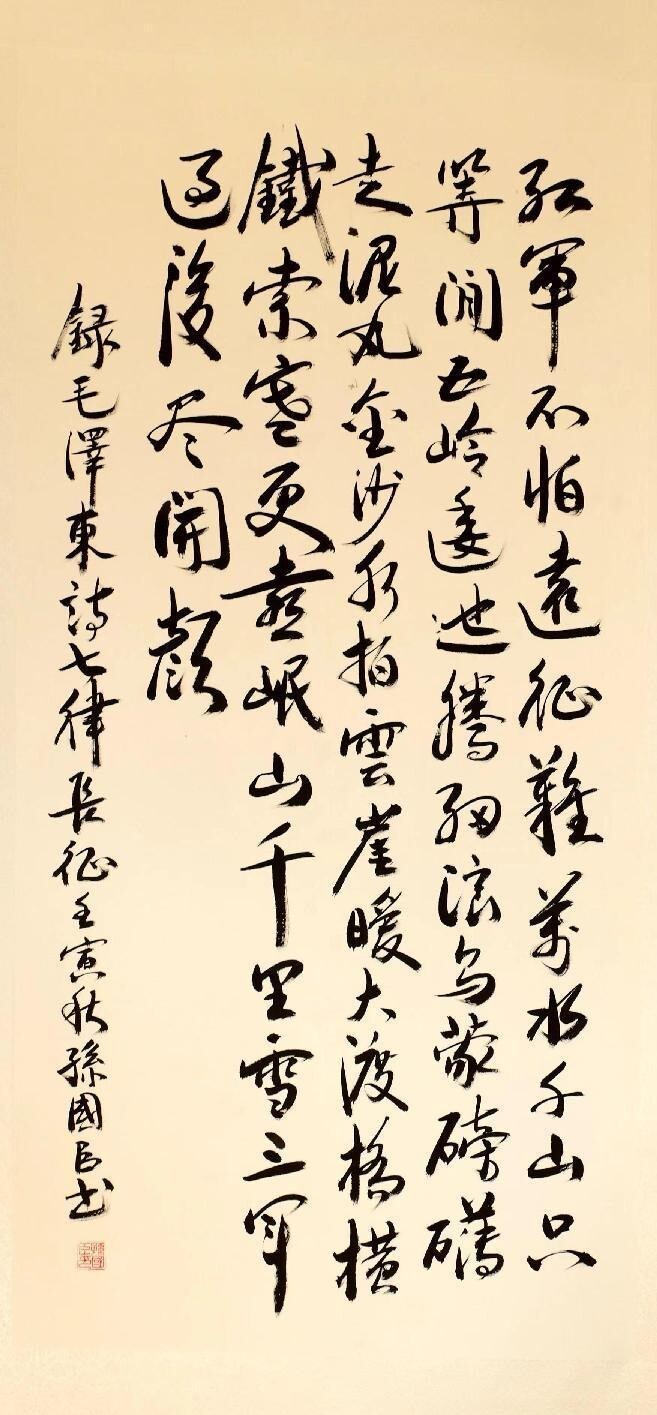 红軍不怕遠征難萬水千山只
等閒五岭逶迤騰细浪乌蒙磅礴
走泥丸金沙水拍雲崖暖大渡橋横
鐵索寒更喜岷山千里雪三军
过後尽開颜
録毛澤東詩七律長征壬寅秋孫國臣书